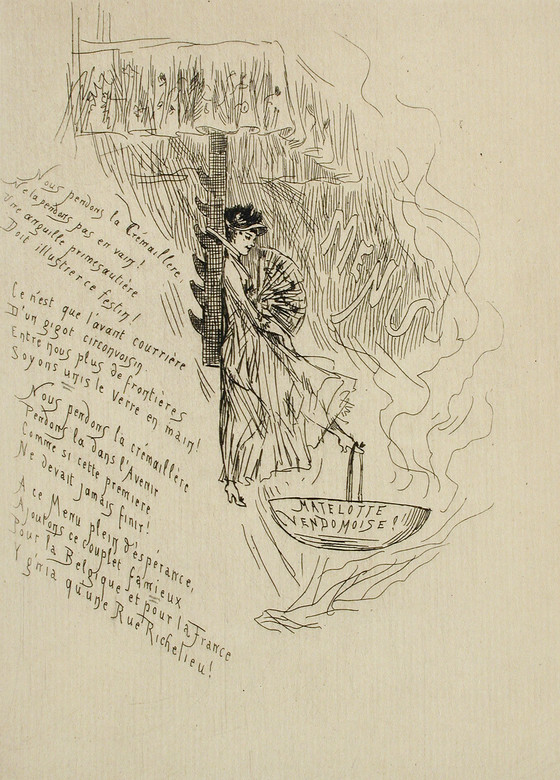 Nous pendons la Crémaillère
Ne la pendons pas en vain!
Une anguille primesautière
Doit illustrer ce festin!
Ce n'est que l'avant courrière
D'un gigot circonvoisin
Entre nous plus de frontières
Soyons unis le verre en main!
Nous pendons la crémaillère
Pendons la dans l'Avenir
Comme si cette première
Ne devait jamais finir!
A ce Menu plein d'espérance,
Ajoutons ce couplet fameux
Pour la Belgique et pour la France
Y gnia qu'une Rue Richelieu!
MENUS
MATELOTTE
VENDOMOISE!